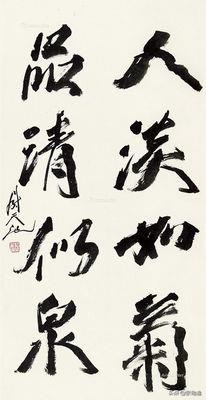 人淡如菊
品清似泉